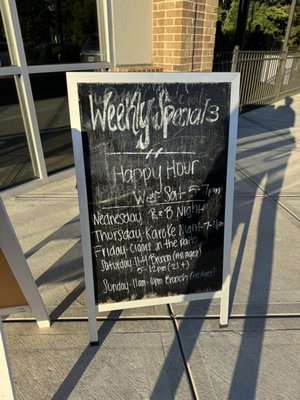 Weekly Specials
Happy Hour
Wed-Sat - 5-7pm
Wednesday R&B Night
Thursday-Karoke Night 7-11pm
Friday-Cigars on the patio
Saturday 11-4 Brunch (All Ages)
5-12pm (21+)
Sunday-11am-6pm Brunch (All Ages)